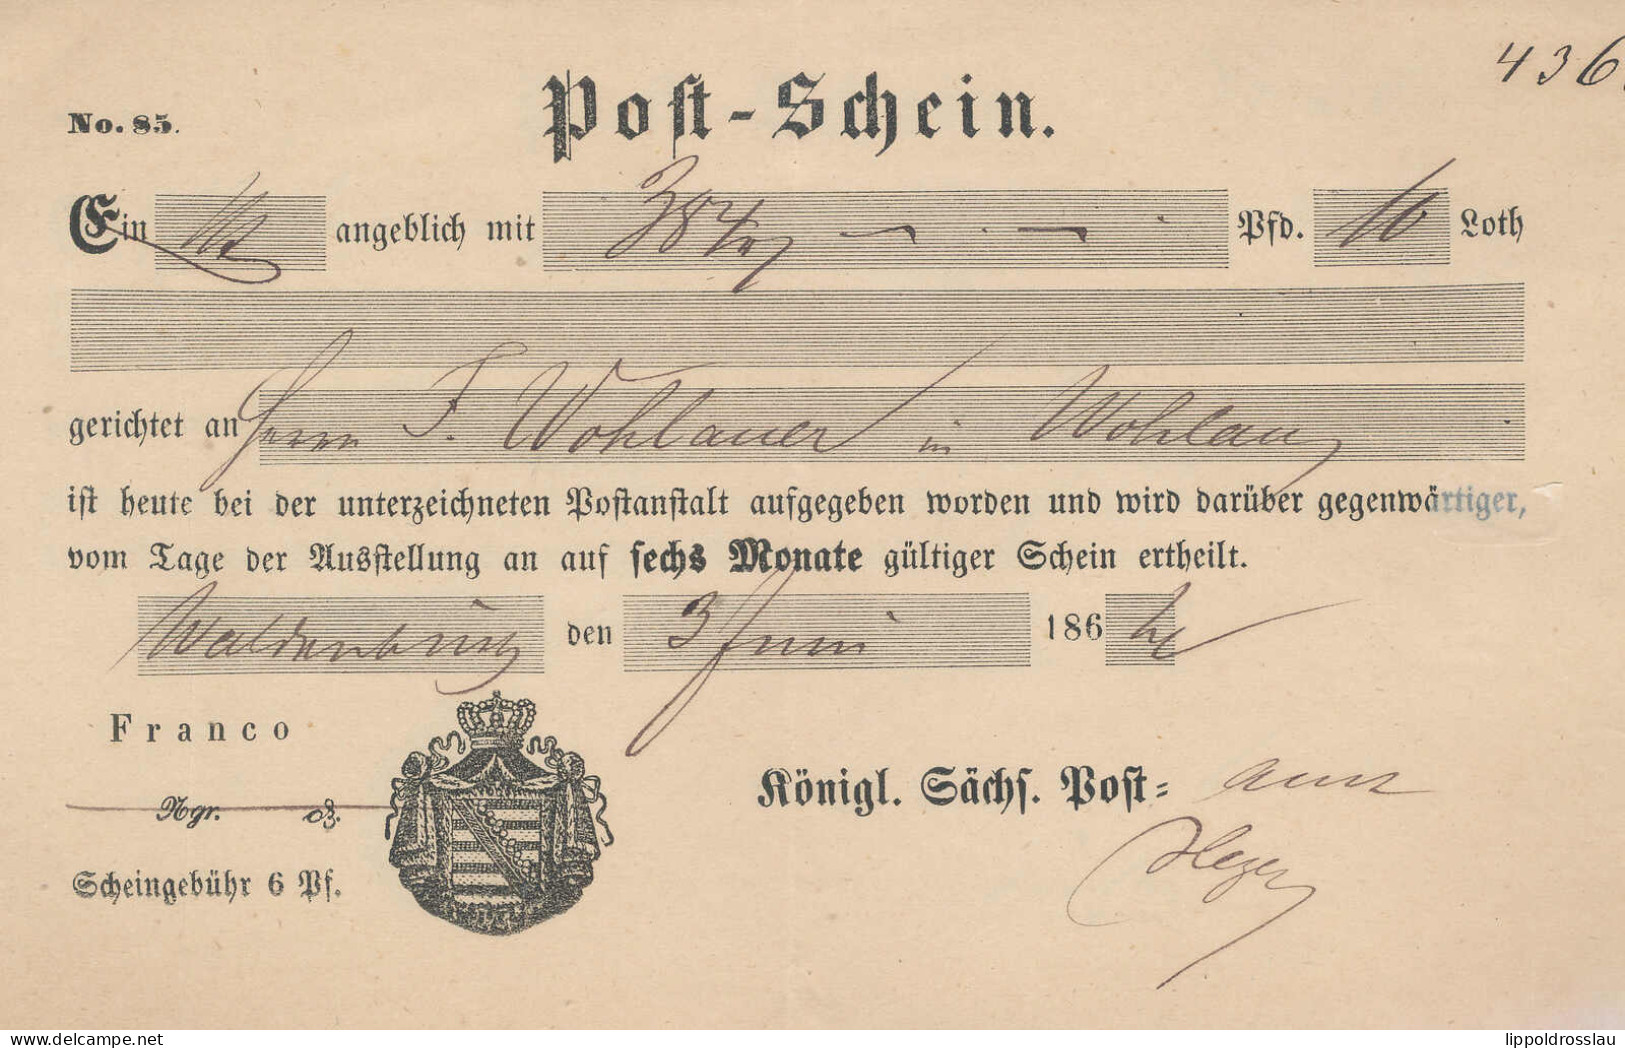 436
No. 85.
Post-Schein.
Ein angeblich mit Pfd. 16 Loth
gerichtet an Herrn F. Wohlauer in Wohlau
ist heute bei der unterzeichneten Postanstalt aufgegeben worden und wird darüber gegenwärtiger,
vom Tage der Ausstellung an auf sechs Monate gültiger Schein ertheilt.
Waldenburg den 3 Juni 186
Franco
Königl. Sächs. Post- amt
Ngr. Pf.
Scheingebühr 6 Pf.
lippoldrosslau